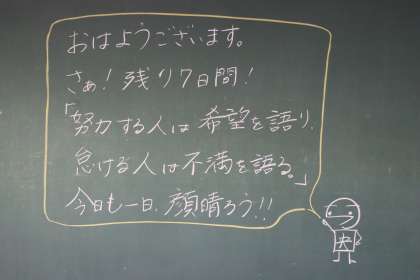 おはようございます。
さぁ!残り7日間!
「努力する人は希望を語り、
怠ける人は不満を語る。」
今日も一日、顔晴ろう!!